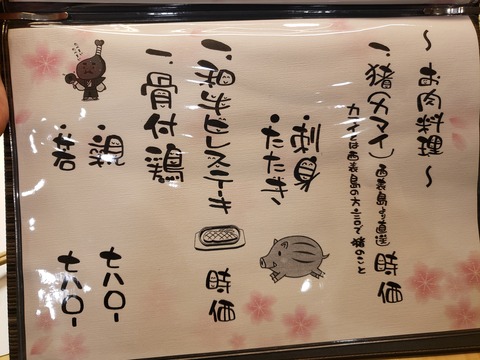 ～お肉料理～
一、猪(カマイ) 西表島より直送 時価
カマイは西表島の方言で猪のこと
刺身
たたき
一、和牛ヒレステーキ 時価
一、骨付鶏
・親 七八〇-
・若 七八〇-